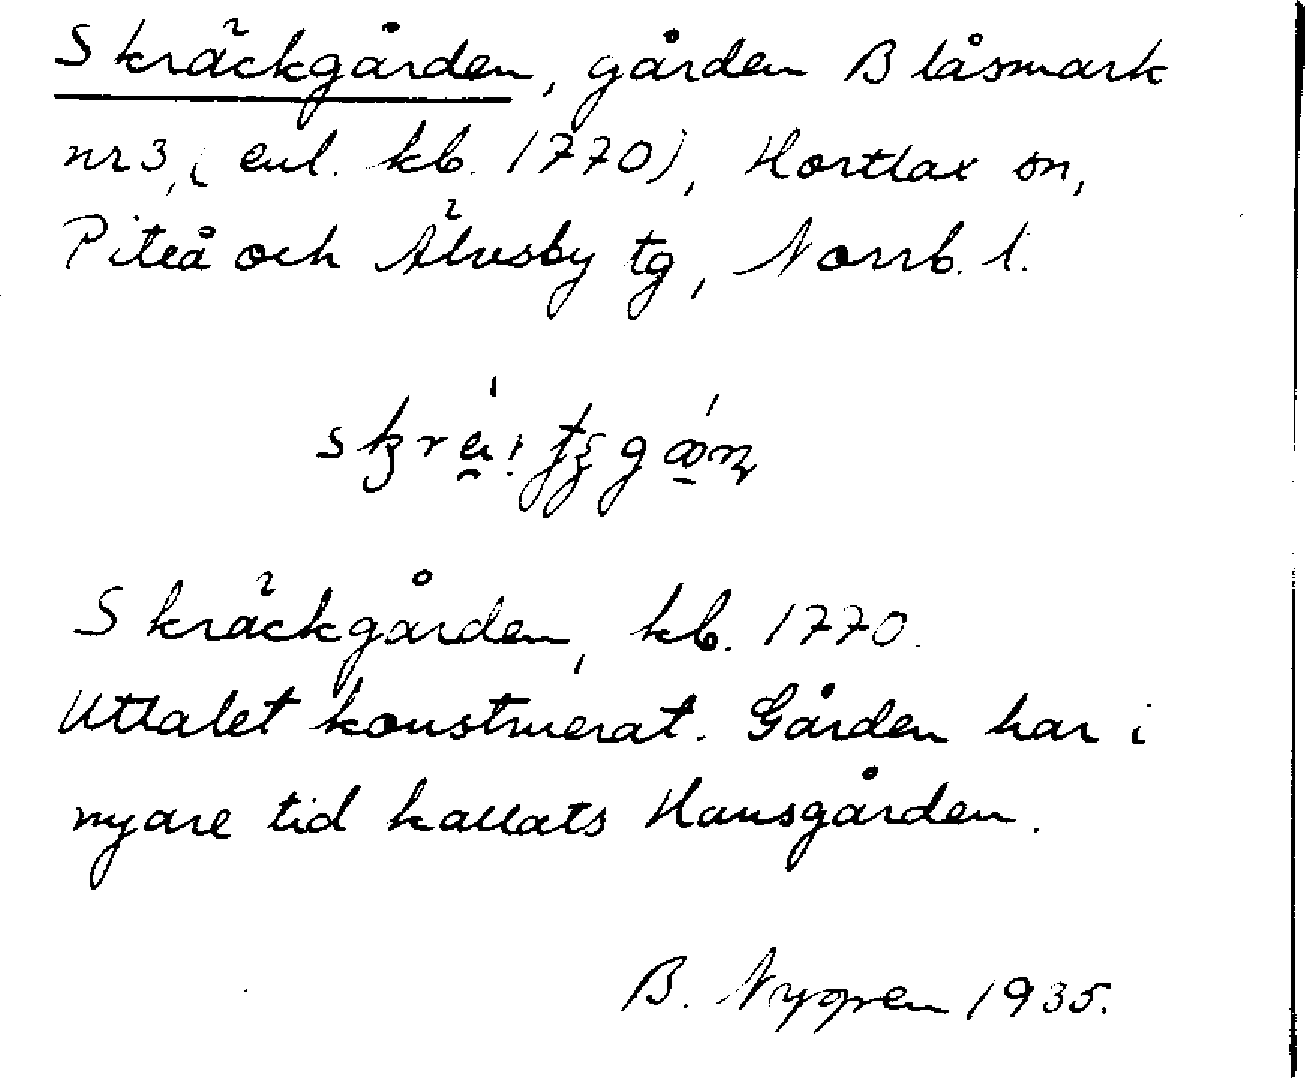 Skräckgården, gården Blåsmark
nr 3, (enl. kb. 1770), Hortlax sn,
Piteå och Älvsby tg, Norrb. l.
Skräckgården, kb. 1770.
Uttalet konstruerat. Gården har i
nyare tid kallats Hansgården.
B. Nygren 1935.